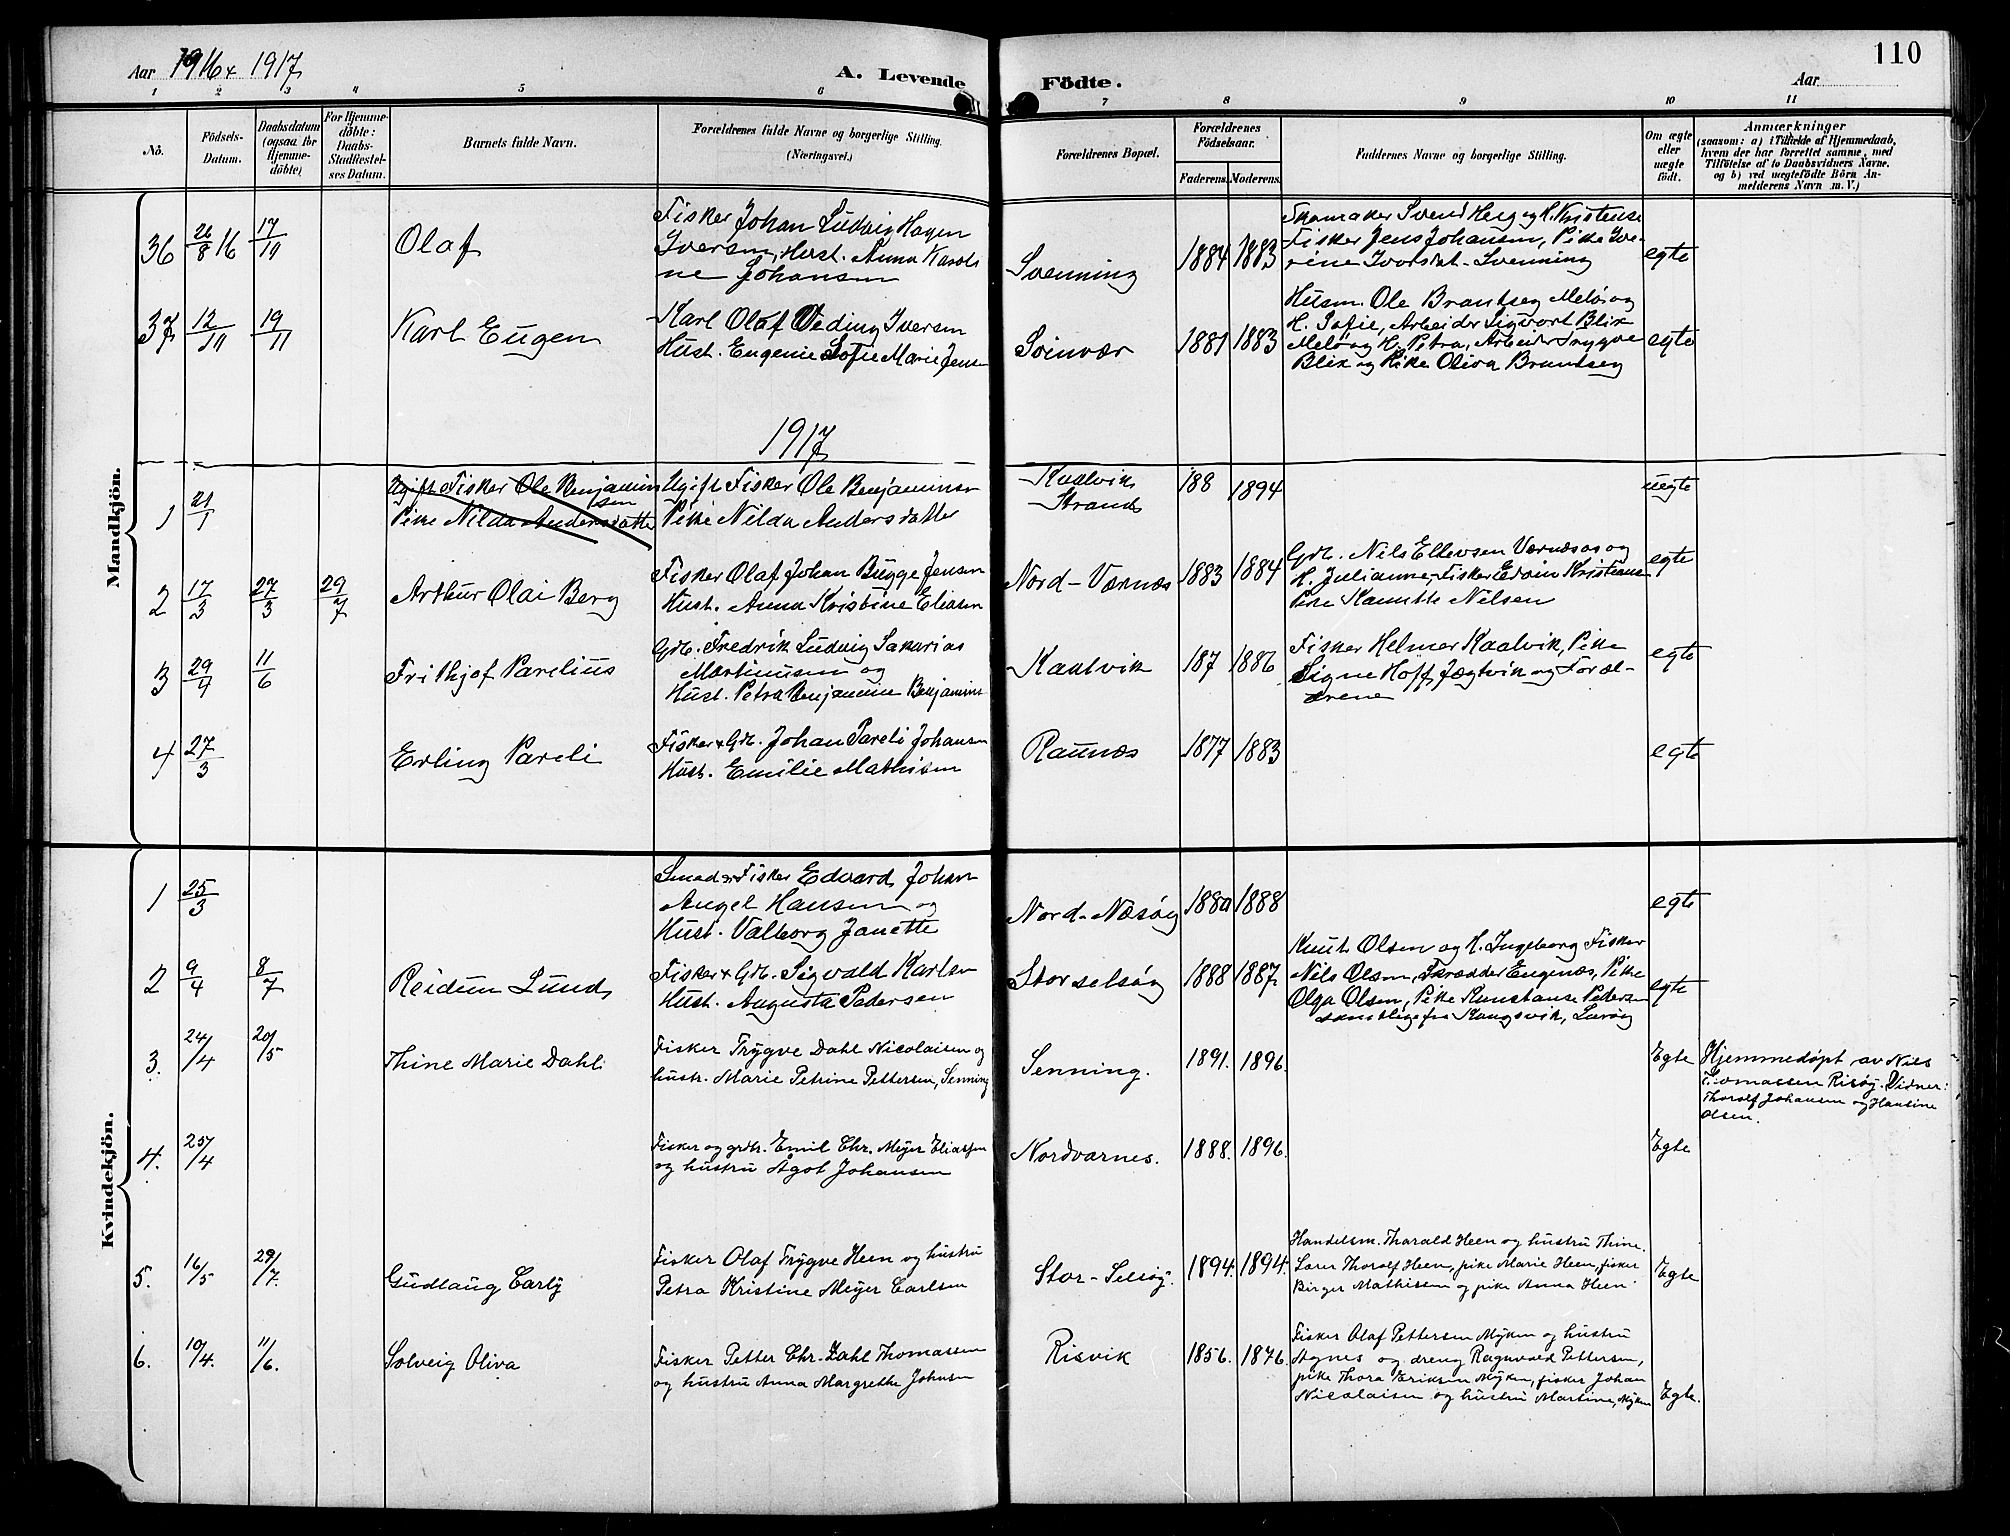 Aar 1916 + 1917
A. Levende Födte.
Aar
110
1 2 3 4 5 6 7 8 9 10 11
No.
Födsels-Datum.
Daabsdatum (ogsaa for Hjemme-döbte)
For Hjemme-döbte: Daabs-Stadfæstel-ses Datum.
Barnets fulde Navn.
Forældrenes fulde Navne og borgerlige Stilling. (Næringsvei.)
Forældrenes Bopæl.
Forældrenes Födselsaar.
Faderens. Moderens.
Faddernes Navne og borgerlige Stilling.
Om ægte eller uægte födt.
Anmærkninger
(saasom: a) i Tilfælde af Hjemmedaab,
hvem der har forrettet samme, med
Tilföielse af to Daabsvidners Navne.
og b) ved uægtefödte Börn An-
melderens Navn m. V.)
Mandkjön.
36 26/8 16 17/11 Olaf
Fisker Johan Ludvig Hagen
Iversen, Hust. Anna Karoli
ne Johansen
Svenning 1884 1883
Skomaker Svend Heig og H. Kristense
Fisker Jens Johansen, Pike Ive-
rine Iversdat. Svenning
egte
37 12/11 19/11 Karl Eugen
Karl Olaf Veding Iversen
Hust. Eugenie Sofie Marie Jensen
Svinvær 1881 1883
Husm. Ole Brantseg Melø og
H. Sofie, Arbeider Sigvart Blix
Melø og H. Petra, Arbeider Trygve
Blix og Pike Oliva Brantseg
egte
1917
1 21/1
Ugift Fisker Ole Benjamin
sen
Pike Nilda Andersdatte
Ugift Fisker Ole Benjaminsen
Pike Nilda Andersdatter
Kaalvik
Strand
188 1894
uegte
2 17/3 27/3 29/7 Arthur Olai Berg
Fisker Olaf Johan Bugge Jensen
Hust. Anna Kristine Eliasen
Nord-Værnæs 1883 1884
Grb. Nils Ellevsen Værnæs og
H. Julianne, Fisker Edvin Kristians
Pike Nilsen
egte
3 29/4 11/6 Frithjof Parelius
Grb. Fredrik Ludvig Sakarias
Martinusen og
Hust. Petra Benjamine Benjamins
Kaalvik 187 1886
Fisker Helmer Kaalvik, Pike
Signe Hoff, Jægtvik og Foræl-
drene
egte
4 27/3 Erling Pareli
Fisker + Grb. Johan Pareli Johansen
Hust. Emilie Mathisen
Raunæs 1877 1883 egte
Kvindekjön.
1 25/3
Smed og Fisker Edvard Johan
Angel Hansen og
Hust. Valborg Janette
Nord-Næsøy 1880 1888 egte
2 9/4 8/7 Reidun Lund
Fisker + Grb. Sigvald Karlsen
Hust. Augusta Pedersen
Storselsøy 1888 1887
Knut Olsen og H. Ingeborg Fisker
Nils Olsen, Skrædder Eugenæs, Pike
Olga Olsen, Pike Konstanse Pedersen
samtlige fra Kongsvik, Lurøy
egte
3. 24/4 20/5 Thine Marie Dahl
Fisker Trygve Dahl Nicolaisen og
hustr. Marie Petrine Pettersen, Senning
Senning. 1891. 1896. Egte
Hjemmedøpt av Nils
Thomassen Risøy. Vidner:
Thorolf Johansen og Hansine
Olsen.
4. 25/4
Fisker og grdbr. Emil Chr. Meyer Eliassen
og hustru Ågot Johansen
Nordvarnes. 1888. 1896. Egte
5. 16/5 29/7. Gudlaug Carly
Fisker Olaf Trygve Heen og hustru
Petra Kristine Meyer Carlsen
Stor-Selsøy. 1894. 1894.
Handelsm. Tharald Heen og hustru Thine.
Lærer Thorolf Heen, pike Marie Heen, fisker
Birger Mathisen og pike Anna Heen
Egte
6. 10/4. 11/6. Solveig Oliva
Fisker Petter Chr. Dahl Thomassen
og hustru Anna Margrethe Johnsen
Risvik 1856. 1876.
Fisker Olaf Pettersen Myken og hustru
Agnes og dreng Ragnvald Pettersen,
pike Thora Eriksen Myken, fisker Johan
Nicolaisen og hustru Martine, Myken
Egte.